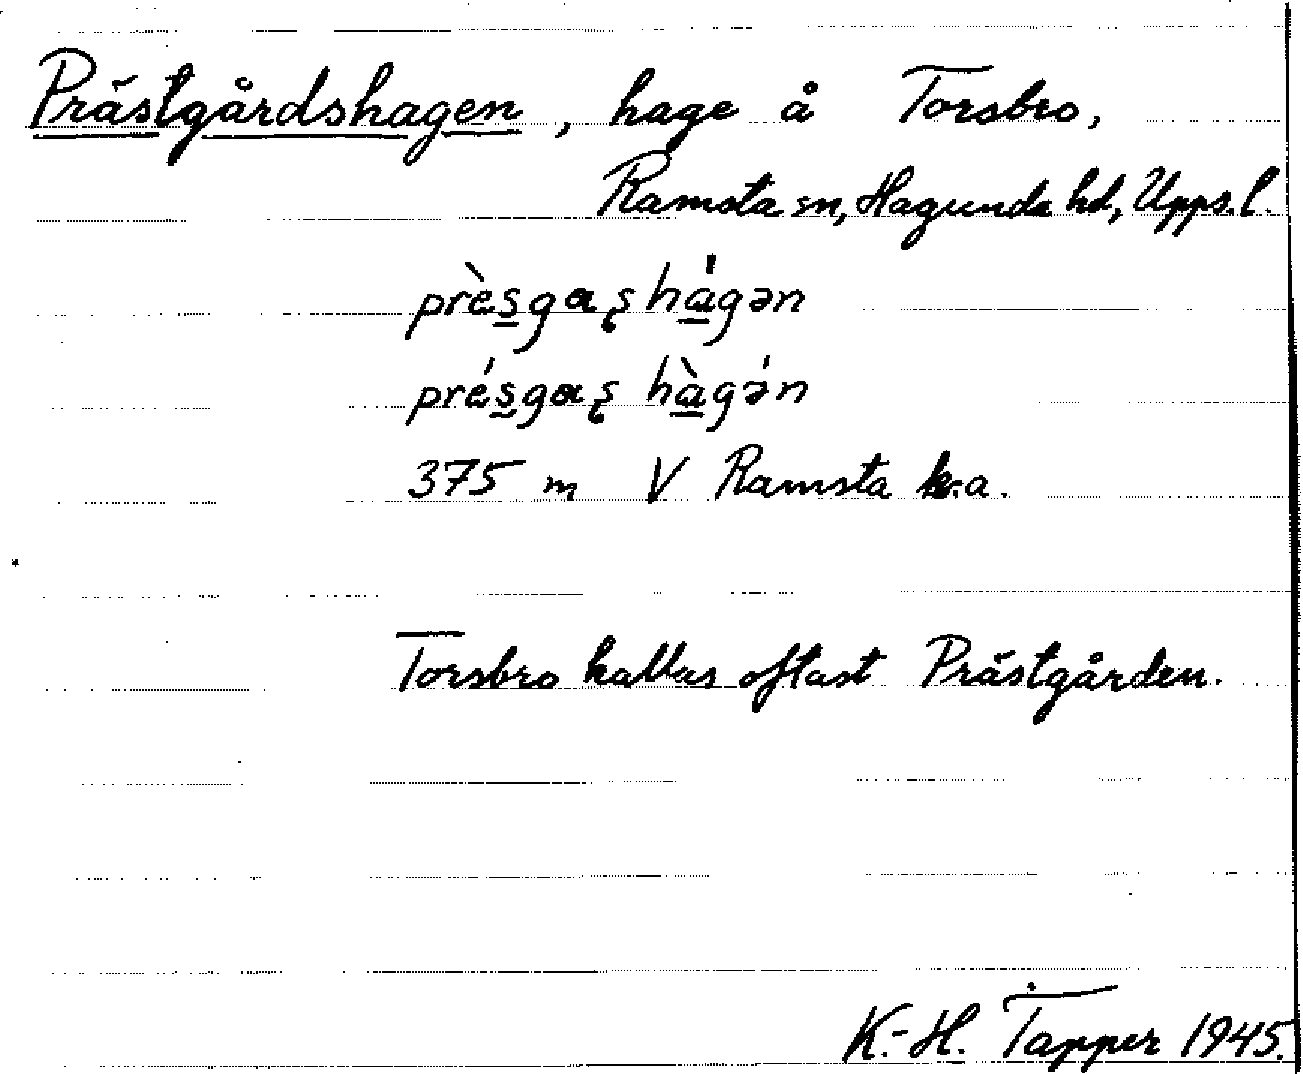 Prästgårdshagen, hage å Torsbro,
Ramsta sn, Hagunda hd, Upps. l.
près̲gɑʂ ha̲̍gən
prés̲gɑʂ hà̲gə́n
375 m V Ramsta k:a.
Torsbro kallas oftast Prästgården.
K.-H. Tapper 1945.